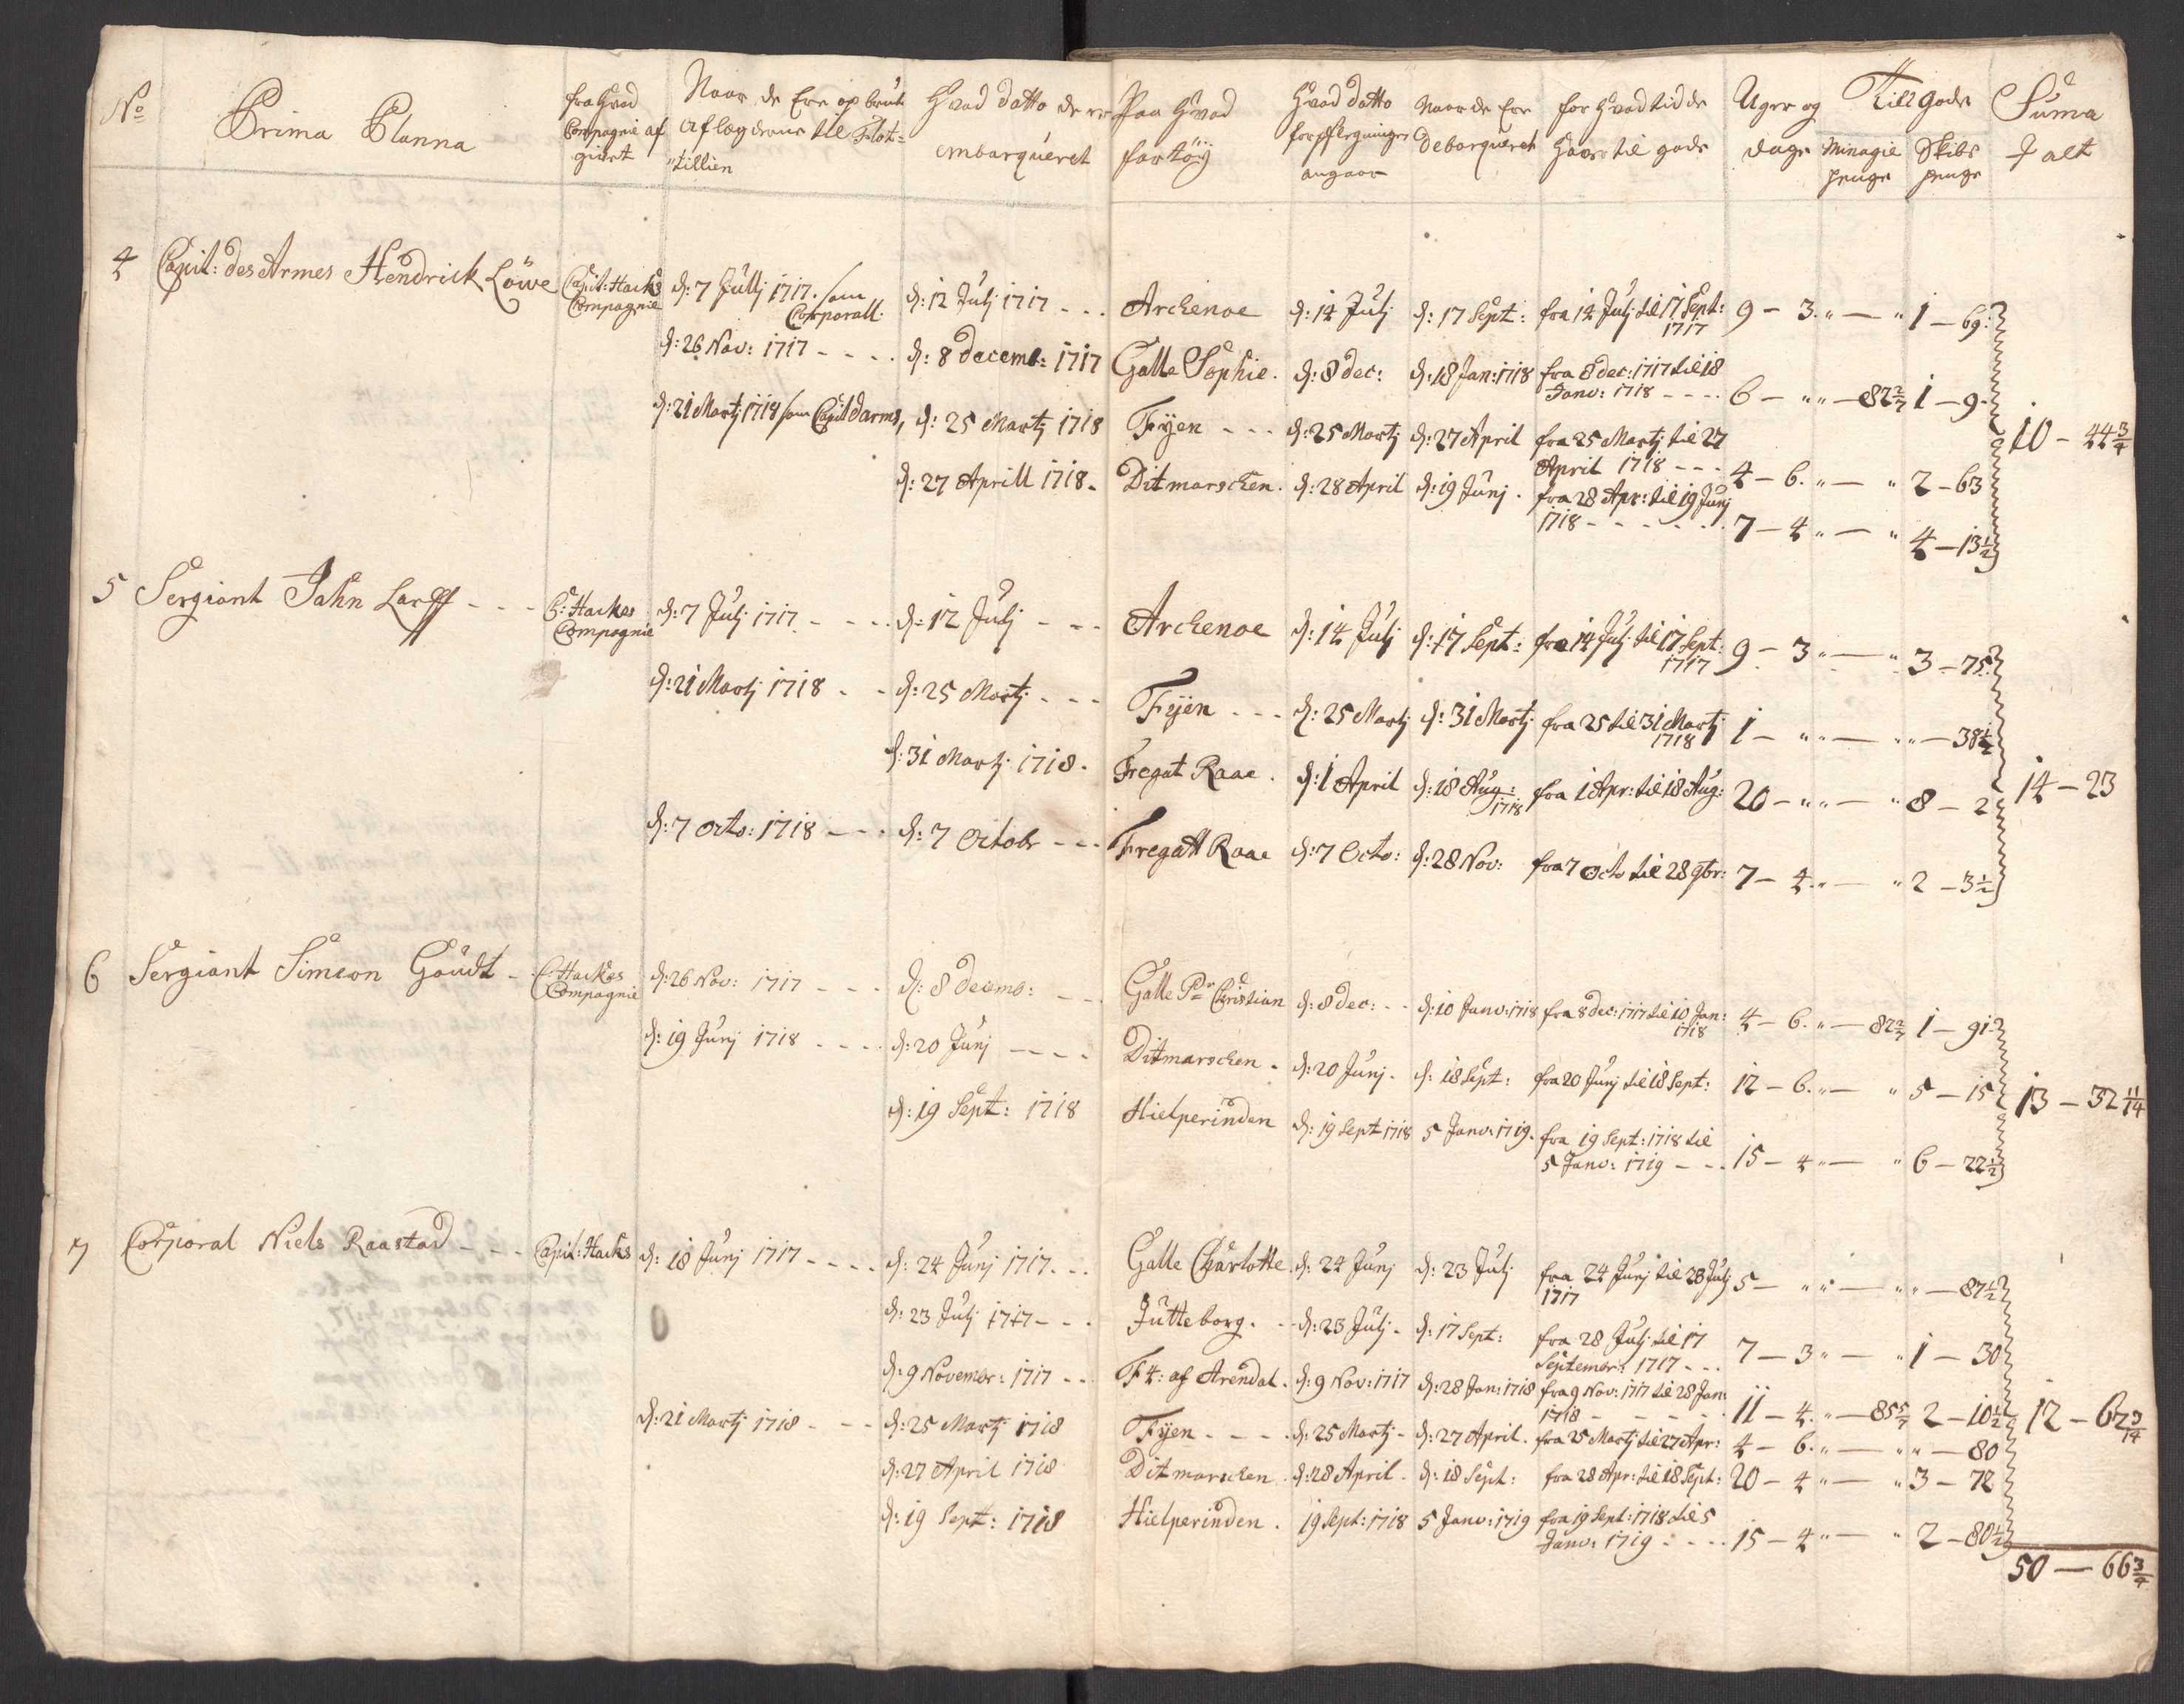 No
Prima Planna
fra hvad
Compagnie af
giort
Naar de Ere op brut
af legderne til Flot=
tillien
Hvad datto de ere
embarqueret
Paa hvad
fartöy
Hvad datto
forpflegninger
angaar
Naar de Ere
debarqueret
for hvad tid de
haver til gode
Uger og
dage
Till gode
Minagie
penge
Skibs
penge
Suma
J alt
4 Capit: des Armes Hendrick Löwe Capit: Hacks
Compagnie
d: 7 Julj 1717. som
Corporall.
d: 12 Julj 1717 - - . Archenoe d: 14 Julj d: 17 Sept: fra 14 Julj til 17 Sept:
1717
9 - 3. " — " 1 — 69.
d: 26 Nov: 1717 - - - . d: 8 decemb: 1717 Galle Sophie. d: 8 dec: d: 18 Jan: 1718 fra 8 dec: 1717 til 18
Janv: 1718 - - - . 6 — " " — 82 2/7 1 — 9.
d: 21 Martj 1718 som Capit darms, d: 25 Martj 1718 Fyen - - - d: 25 Martj d: 27 April fra 25 Martj til 27
April 1718 - - - 4 — 6. " — " 2 — 63
10 — 44 3/4
d: 27 Aprill 1718. Ditmarschen. d: 28 April d: 19 Junj . fra 28 Apr: til 19 Junj
1718 - - - - - - . 7 — 4 " — " 4 — 13 1/2
5 Sergiant Jahn Larff - - - C: Hackes
Compagnie
d: 7 Julj 1717 - - - . d: 12 Julj - - - Archenoe d: 14 Julj d: 17 Sept: fra 14 Julj til 17 Sept:
1717
9 — 3 " — " 3 — 75.
d: 21 Martj 1718 - - d: 25 Martj - - - Fyen - - - d: 25 Martj d: 31 Martj fra 25 til 31 Martj
1718
1 — " " — " " — 38 1/2
d: 31 Martj 1718. Fregat Raae . d: 1 April d: 18 Aug:
1718
fra 1 Apr: til 18 Aug: 20 — " " — " 8 — 2
14 — 23
d: 7 octo: 1718 - - . d: 7 octobr - - - Fregatt Raae d: 7 Octo: d: 28 Nov: fra 7 octo til 28 9br: 7 — 4 " — " 2 — 3 1/2
6 Sergiant Simeon Goudt - C: Hackes
Compagnie
d: 26 Nov: 1717 - - - d: 8 decemb: - - - Galle Pr Christian d: 8 dec: - - d: 10 Janv: 1718 fra 8 dec: 1717 til 10 Jan:
1718
4 — 6. " — 82 2/7 1 — 91.
d: 19 Junj 1718 - - - - d: 20 Junj - - - - Ditmarschen . d: 20 Junj. d: 18 Sept: fra 20 Junj til 18 Sept: 12 — 6. " — " 5 — 15
13 — 32 11/14
d: 19 Sept: 1718 Hielperinden d: 19 Sept 1718 5 Janv: 1719. fra 19 Sept: 1718 til
5 Janv: 1719 - - . 15 — 4 " — " 6 — 22 1/2
7 Corporal Niels Raastad - - - Capit: Hacks d: 18 Junj 1717 - - - - d: 24 Junj 1717. - . Galle Charlotte. d: 24 Junj d: 23 Julj fra 24 Junj til 28 Julj
1717
5 — " " — " " — 87 1/2
d: 23 Julj 1717 - - . Jutteborg. - d: 23 Julj. d: 17 Sept: fra 28 Julj til 17
Septembr: 1717 - - . 7 — 3 " — " 1 — 30
d: 9 Novembr: 1717 - - F4: af Arendal. d: 9 Nov: 1717 d: 28 Jan: 1718 fra 9 Nov: 1717 til 28 Jan:
1718 - - - - - . 11 — 4. " — 85 5/7 2 — 10 1/2
12 — 62 3/14
d: 21 Martj 1718 - - - d: 25 Martj 1718 Fyen - - - - d: 25 Martj - d: 27 April. fra 25 Martj til 27 Apr: 4 — 6. " — " " — 80
d: 27 April 1718 Ditmarschen . d: 28 April. d: 18 Sept: fra 28 Apr: til 18 Sept: 20 — 4 " — " 3 — 72
d: 19 Sept: 1718 Hielperinden . 19 Sept: 1718 5 Janv: 1719 fra 19 Sept: 1718 til 5
Janv: 1719 - - - . 15 — 4 " — " 2 — 80 1/2
50 — 66 3/4